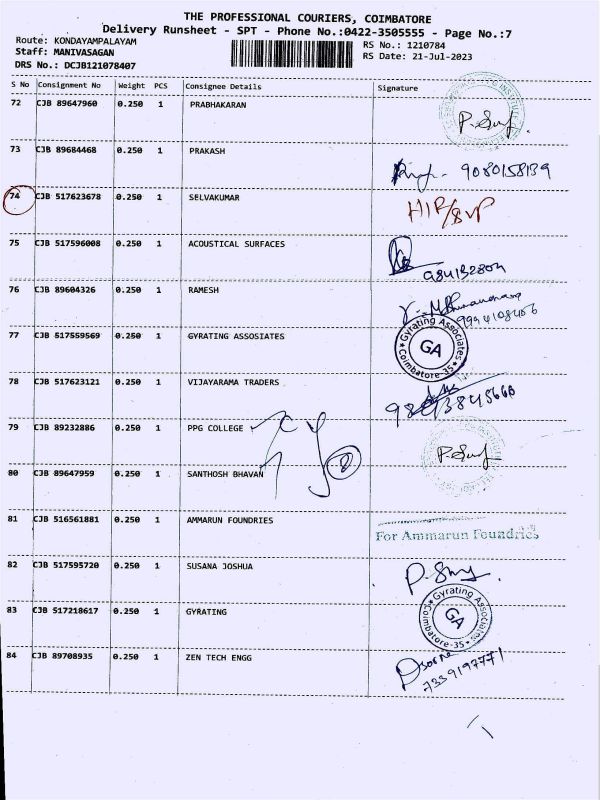 THE PROFESSIONAL COURIERS, COIMBATORE
Delivery Runsheet - SPT - Phone No.:0422-3505555 - Page No.:7
Route: KONDAYAMPALAYAM
Staff: MANIVASAGAN
DRS No.: DCJB121078407
RS No.: 1210784
RS Date: 21-Jul-2023
S No Consignment No Weight PCS Consignee Details Signature
72 CJB 89647960 0.250 1 PRABHAKARAN
73 CJB 89684468 0.250 1 PRAKASH
9080158139
74 CJB 517623678 0.250 1 SELVAKUMAR
75 CJB 517596008 0.250 1 ACOUSTICAL SURFACES
76 CJB 89604326 0.250 1 RAMESH
77 CJB 517559569 0.250 1 GYRATING ASSOSIATES
Gyrating Associates
GA
Coimbatore-35
78 CJB 517623121 0.250 1 VIJAYARAMA TRADERS
79 CJB 89232886 0.250 1 PPG COLLEGE
80 CJB 89647959 0.250 1 SANTHOSH BHAVAN
81 CJB 516561881 0.250 1 AMMARUN FOUNDRIES
For Ammarun Foundries
82 CJB 517595720 0.250 1 SUSANA JOSHUA
83 CJB 517218617 0.250 1 GYRATING
Gyrating Associates
GA
Coimbatore-35
84 CJB 89708935 0.250 1 ZEN TECH ENGG
7339197771